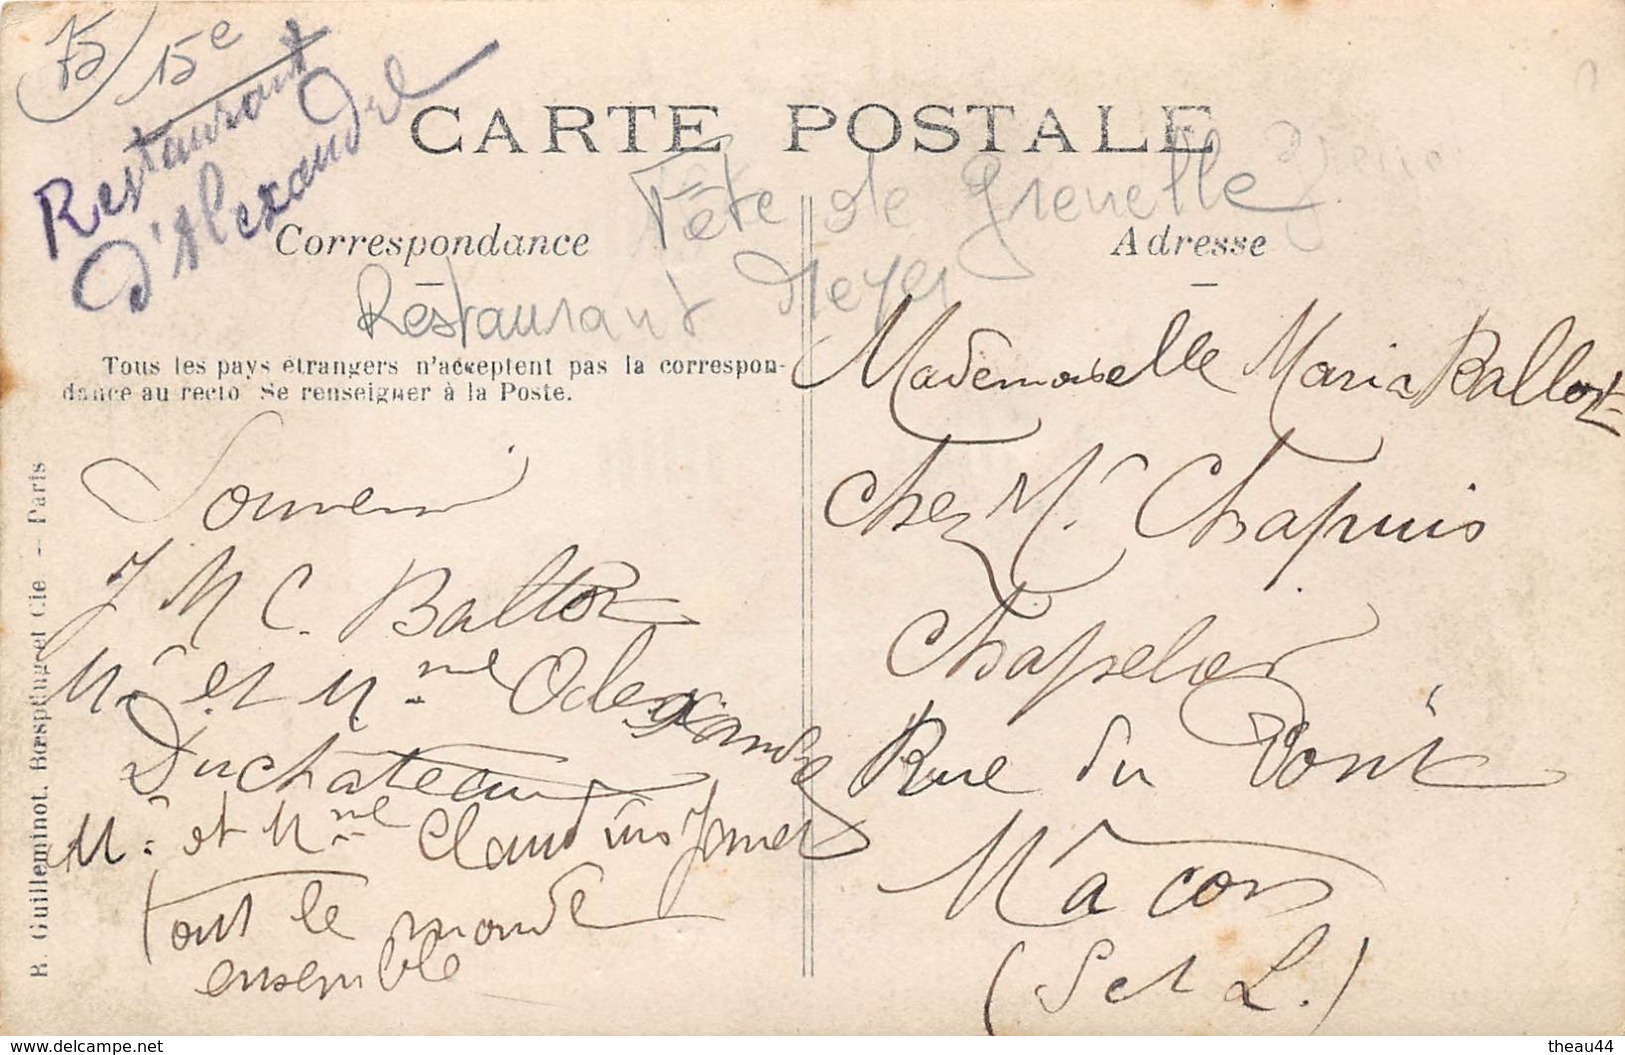 75 15e
Restaurant
d'Alexandre
CARTE POSTALE
Fête de Grenelle
Correspondance
Adresse
Restaurant Meyer
Tous les pays étrangers n'acceptent pas la correspon-
dance au recto Se renseigner à la Poste.
Souvenir
J M C. Ballot
Mr et Mme Alexandre
Duchateau
Mr et Mme Claudius
tout le monde
ensemble
Mademoiselle Maria Ballot
Chez Mr Chapuis
Chapelier
Rue du Pont
Mâcon
(S et L.)
R. Guilleminot, Bœspflug et Cie — Paris
https://www.delcampe.net
theau44